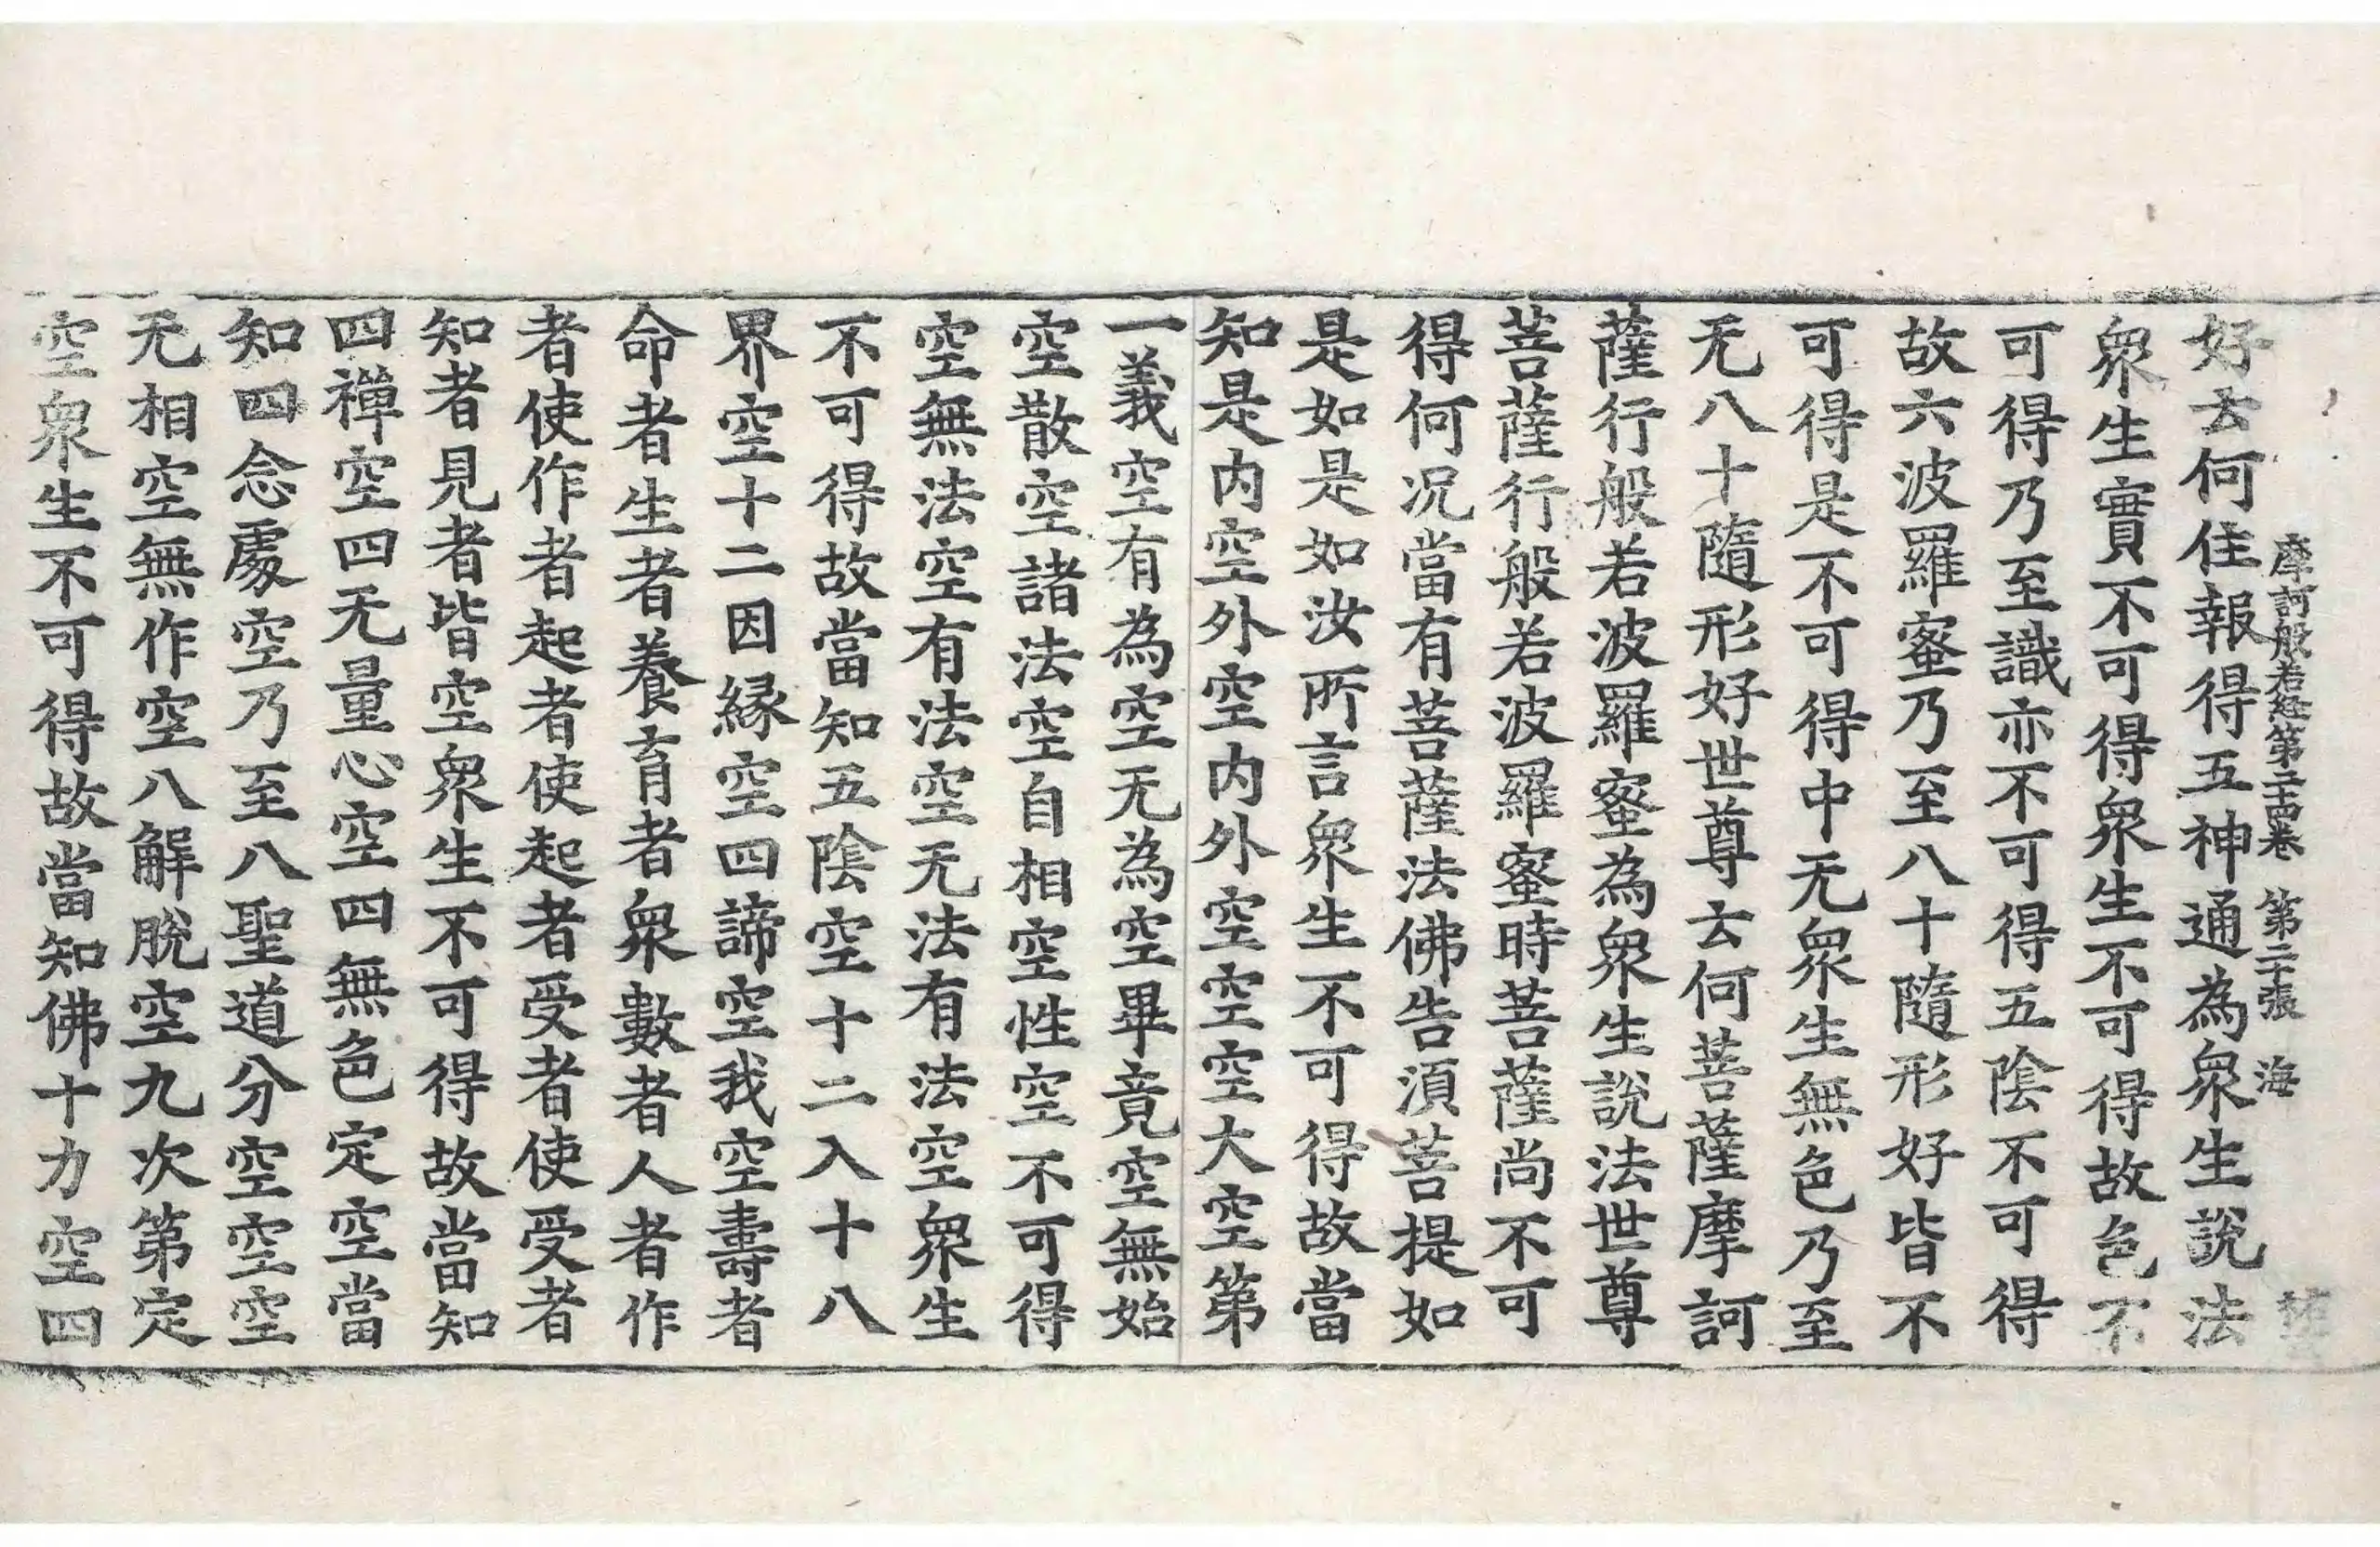 摩訶般若經第二十四卷　第二十張　海
好去何住報得五神通為衆生說法
衆生實不可得衆生不可得故色不
可得乃至識亦不可得五陰不可得
故六波羅蜜乃至八十隨形好皆不
可得是不可得中无衆生無色乃至
无八十隨形好世尊去何菩薩摩訶
薩行般若波羅蜜為衆生說法世尊
菩薩行般若波羅蜜時菩薩尚不可
得何況當有菩薩法佛告湏菩提如
是如是如汝所言衆生不可得故當
知是內空外空內外空空空大空第
一義空有為空无為空畢竟空無始
空散空諸法空自相空性空不可得
空無法空有法空无法有法空衆生
不可得故當知五陰空十二入十八
界空十二因縁空四諦空我空壽者
命者生者養育者衆數者人者作
者使作者起者使起者受者使受者
知者見者皆空衆生不可得故當知
四禪空四无量心空四無色定空當
知四念處空乃至八聖道分空空空
无相空無作空八解脫空九次第定
空衆生不可得故當知佛十力空四